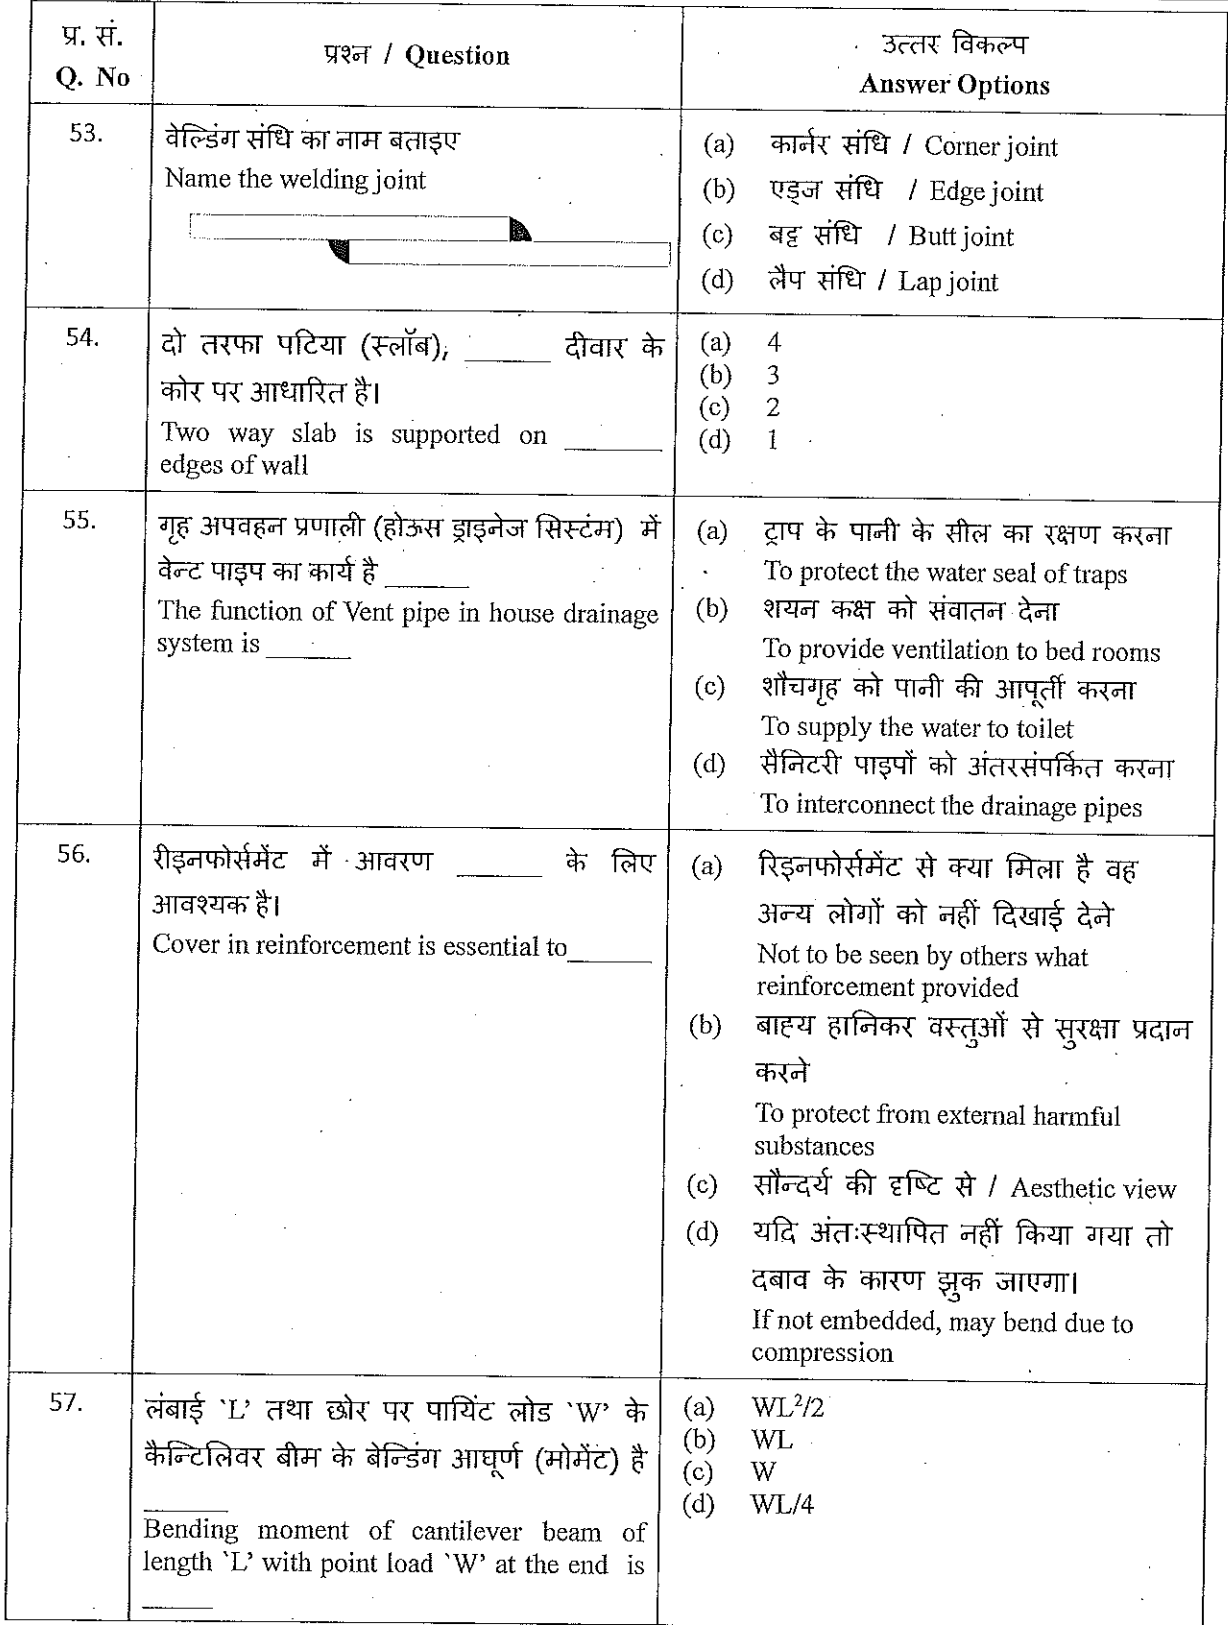 प्र. सं.
Q. No
प्रश्न / Question
उत्तर विकल्प
Answer Options
53.
वेल्डिंग संधि का नाम बताइए
Name the welding joint
(a) कार्नर संधि / Corner joint
(b) एड्ज संधि / Edge joint
(c) बट्ट संधि / Butt joint
(d) लैप संधि / Lap joint
54.
दो तरफा पटिया (स्लॉब), ______ दीवार के
कोर पर आधारित है।
Two way slab is supported on _______
edges of wall
(a) 4
(b) 3
(c) 2
(d) 1
55.
गृह अपवहन प्रणाली (होऊस ड्राइनेज सिस्टंम) में
वेन्ट पाइप का कार्य है ______
The function of Vent pipe in house drainage
system is ______
(a) ट्राप के पानी के सील का रक्षण करना
To protect the water seal of traps
(b) शयन कक्ष को संवातन देना
To provide ventilation to bed rooms
(c) शौचगृह को पानी की आपूर्ती करना
To supply the water to toilet
(d) सैनिटरी पाइपों को अंतरसंपर्कित करना
To interconnect the drainage pipes
56.
रीइनफोर्समेंट में आवरण ______ के लिए
आवश्यक है।
Cover in reinforcement is essential to______
(a) रिइनफोर्समेंट से क्या मिला है वह
अन्य लोगों को नहीं दिखाई देने
Not to be seen by others what
reinforcement provided
(b) बाह्य हानिकर वस्तुओं से सुरक्षा प्रदान
करने
To protect from external harmful
substances
(c) सौन्दर्य की दृष्टि से / Aesthetic view
(d) यदि अंतःस्थापित नहीं किया गया तो
दबाव के कारण झुक जाएगा।
If not embedded, may bend due to
compression
57.
लंबाई `L’ तथा छोर पर पायिंट लोड `W’ के
कैन्टिलिवर बीम के बेन्डिंग आघूर्ण (मोमेंट) है
______
Bending moment of cantilever beam of
length `L’ with point load `W’ at the end is
_____
(a) WL²/2
(b) WL
(c) W
(d) WL/4